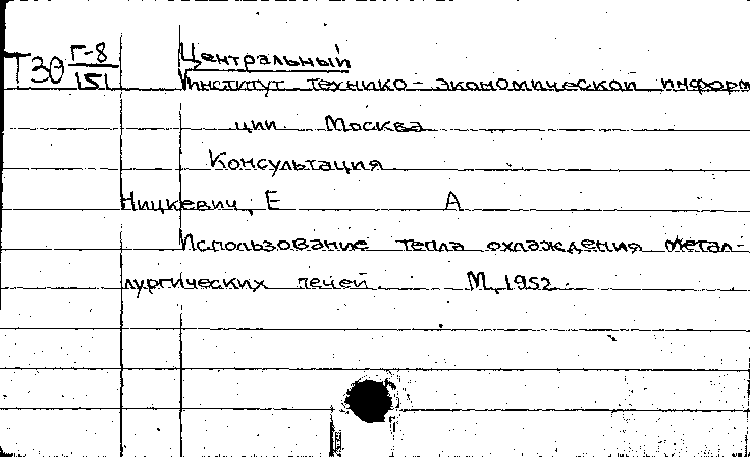 Т30 Г-8/151
Центральный
Институт технико-экономической информ
ции Москва
Консультация
Ницкевич, Е А
Использование тепла охлаждения метал-
лургических печей. М, 1952.